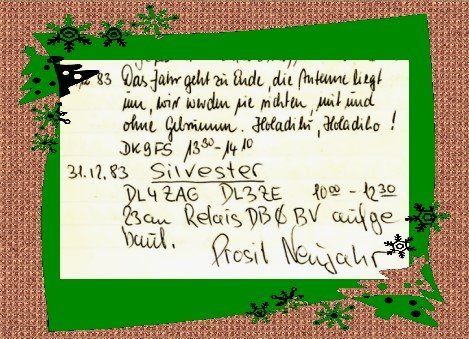 83 Das Jahr geht zu Ende, die Antenne liegt
um, wir werden sie richten mit und
ohne Gebrumm. Holadihi, Holadiho !
DK9FS 13³⁰-14¹⁰
31.12.83 Silvester
DL4ZAG DL3ZE 10⁰⁰ - 12³⁰
23cm Relais DBØBV aufge
baut.
Prosit Neujahr